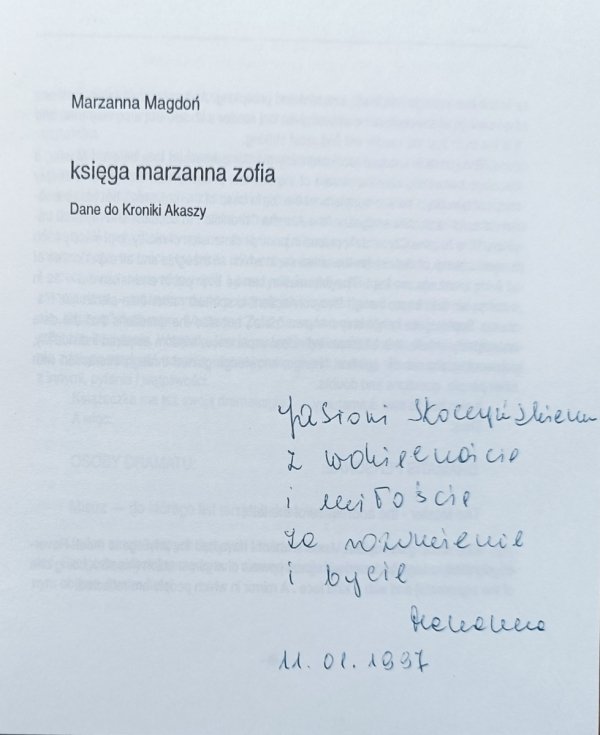 Marzanna Magdoń
księga marzanna zofia
Dane do Kroniki Akaszy
Jasiowi Skoczyńskiemu
z wdzięcznością
i miłością
za rozumienie
i bycie
Marzanna
11.01.1997